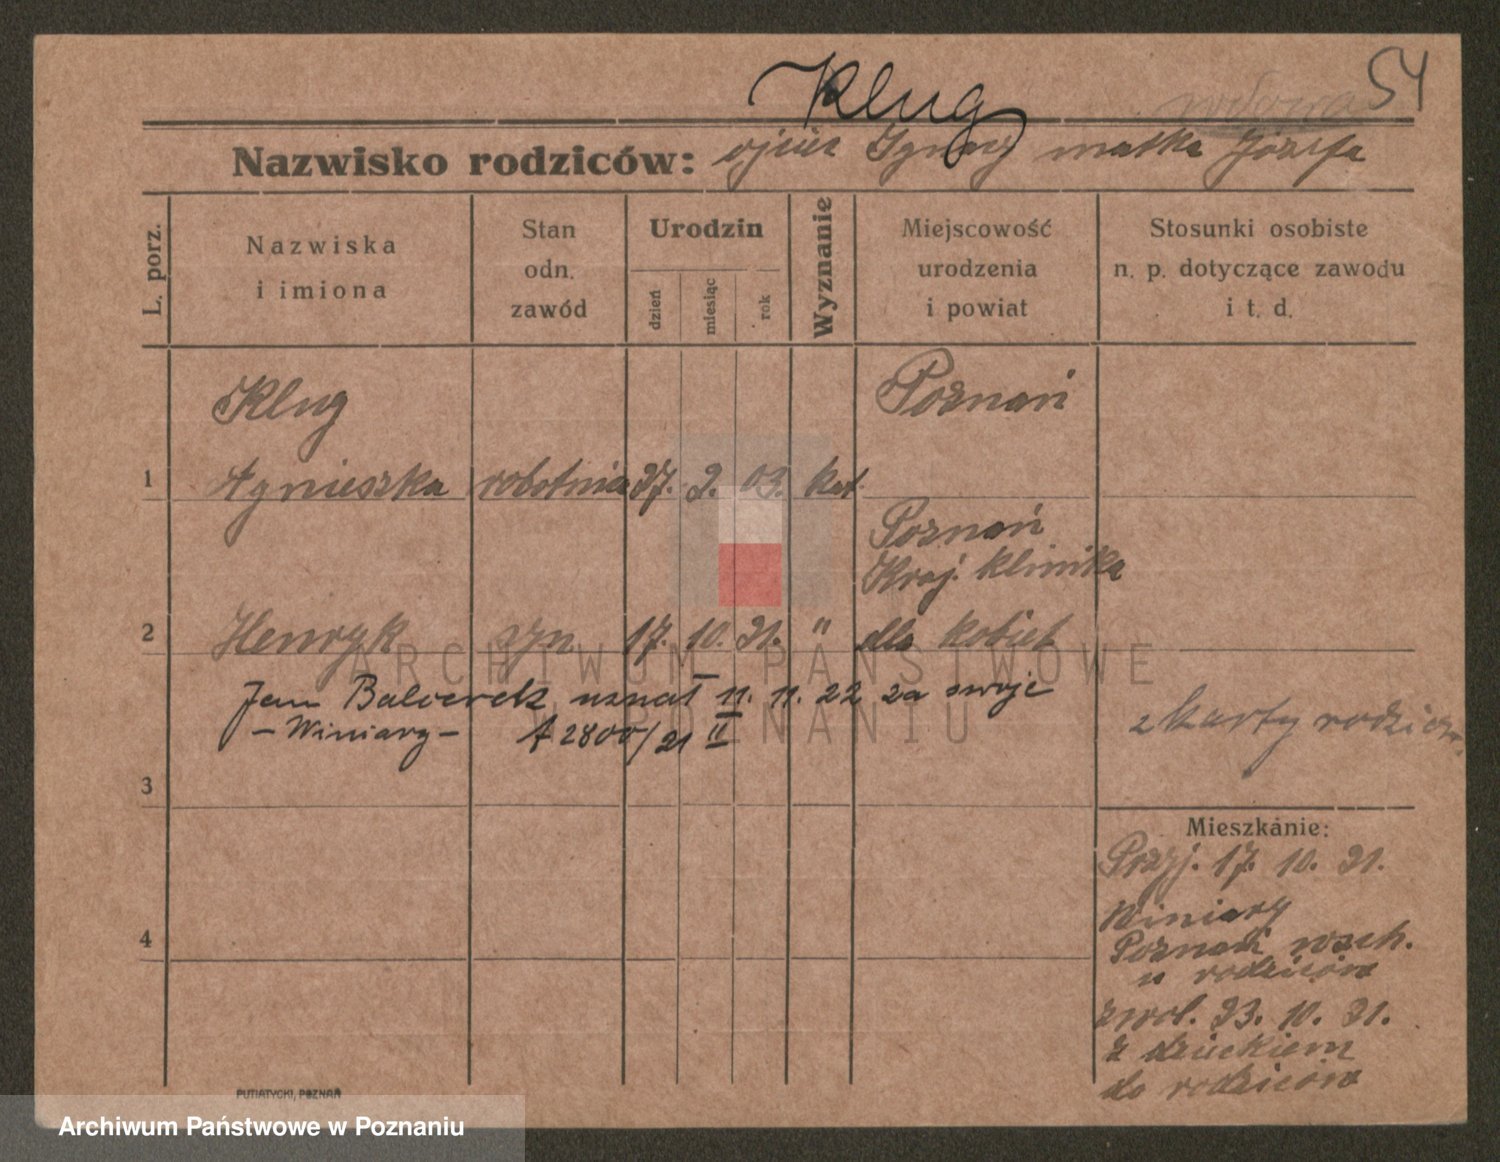 Klug
54
Nazwisko rodziców: ojciec Ignacy matka Józefa
L. porz.
Nazwiska
i imiona
Stan
odn.
zawód
Urodzin
dzień
miesiąc
rok
Wyznanie
Miejscowość
urodzenia
i powiat
Stosunki osobiste
n. p. dotyczące zawodu
i t. d.
Klug
Poznań
1 Agnieszka robotnica 27. 2. 03. kat.
Poznań
Kraj. klinika
2 Henryk syn 17. 10. 21. " dla kobiet
Jan uznał 11. 11. 22 za swoje
– Winiary – 2800/21 II
z karty rodzicz.
3
Mieszkanie:
Przyj. 17. 10. 21.
Winiary
Poznań wsch.
u rodziców
4
zwol. 23. 10. 21.
z dzieckiem
do rodziców
PUTIATYCKI, POZNAŃ
ARCHIWUM PAŃSTWOWE
W POZNANIU
Archiwum Państwowe w Poznaniu